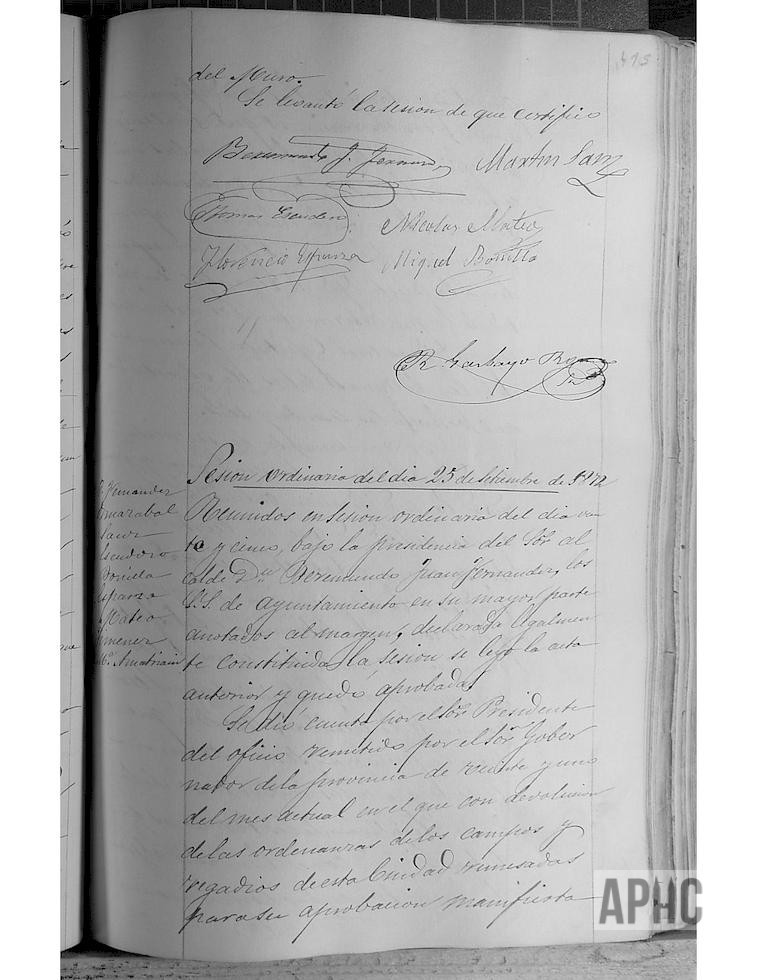 475
del Muro.
Se levantó la sesion de que certifico
Beremundo J. Fernandez Martin Sanz
Thomas Escudero Nicolas Mateo
Florencio Esparza Miguel Bonilla
R. Garbayo
Sesion ordinaria del dia 25 de Setiembre de 1872
Fernandez
Sanz
Escudero
Bonilla
Esparza
Mateo
Jimenez
Mº. Amatriain
Reunidos en sesion ordinaria del dia vein
te y cinco, bajo la presidencia del Sór. al
calde Dn. Beremundo Juan Fernandez, los
S.S. de ayuntamiento en su mayor parte
anotados al margen, declarada legalmen
te constituida, la sesion se leyó la acta
anterior y quedó aprobada,
Se dió cuenta por el Sór. Presidente
del oficio remitido por el Sór. Gober
nador de la provincia de veinte y uno
del mes actual en el que con devolucion
de las ordenanzas de los campos y
regadios de esta Ciudad remesadas
para su aprobacion manifiesta
APHC